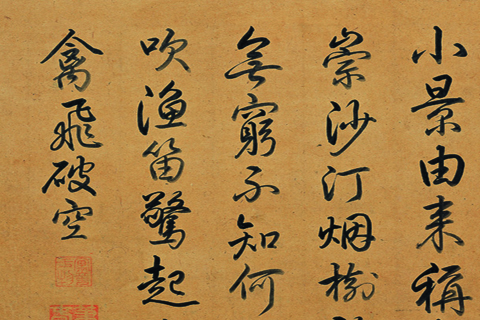 小景由来稱
崇沙汀烟樹
無窮不知何
吹漁笛驚起
禽飛破空